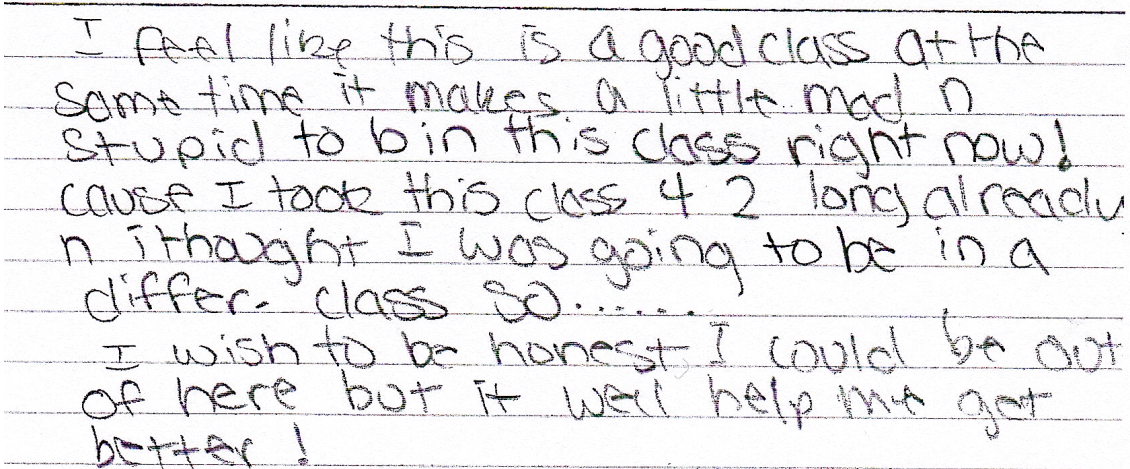 I feel like this is a good class at the
same time it makes a little mad n
stupid to b in this class right now!
cause I took this class 4 2 long already
n i thought I was going to be in a
differ. class so......
I wish to be honest, I could be out
of here but it well help me get
better!